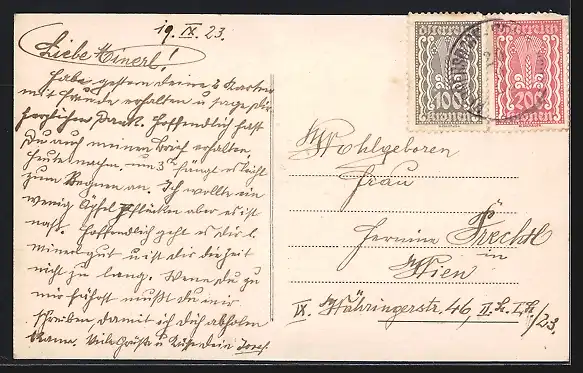 19. IX. 23.
Liebe Minerl!
Habe gestern deine 2 Karten
mit Freude erhalten u sage dir
herzlichen Dank. Hoffendlich hast
Du auch meinen Brief erhalten.
Heute nachm. um 3h fangt es leicht
zum Regnen an. Ich wollte ein
wenig Äpfel pflücken aber es ist
nass. Hoffendlich geht es dir l.
Minerl gut u ist dir die Zeit
nicht zu lang. Wenn du zu
mir fährst musst du mir
schreiben, damit ich dich abholen
kann. Viele Grüße u Küsse dein Josef.
Österreich
100
Österreich
200
Wohlgeboren
Frau
Hermine Prechtl
in
Wien
IX. Währingerstr. 46, II. St. T. /23.